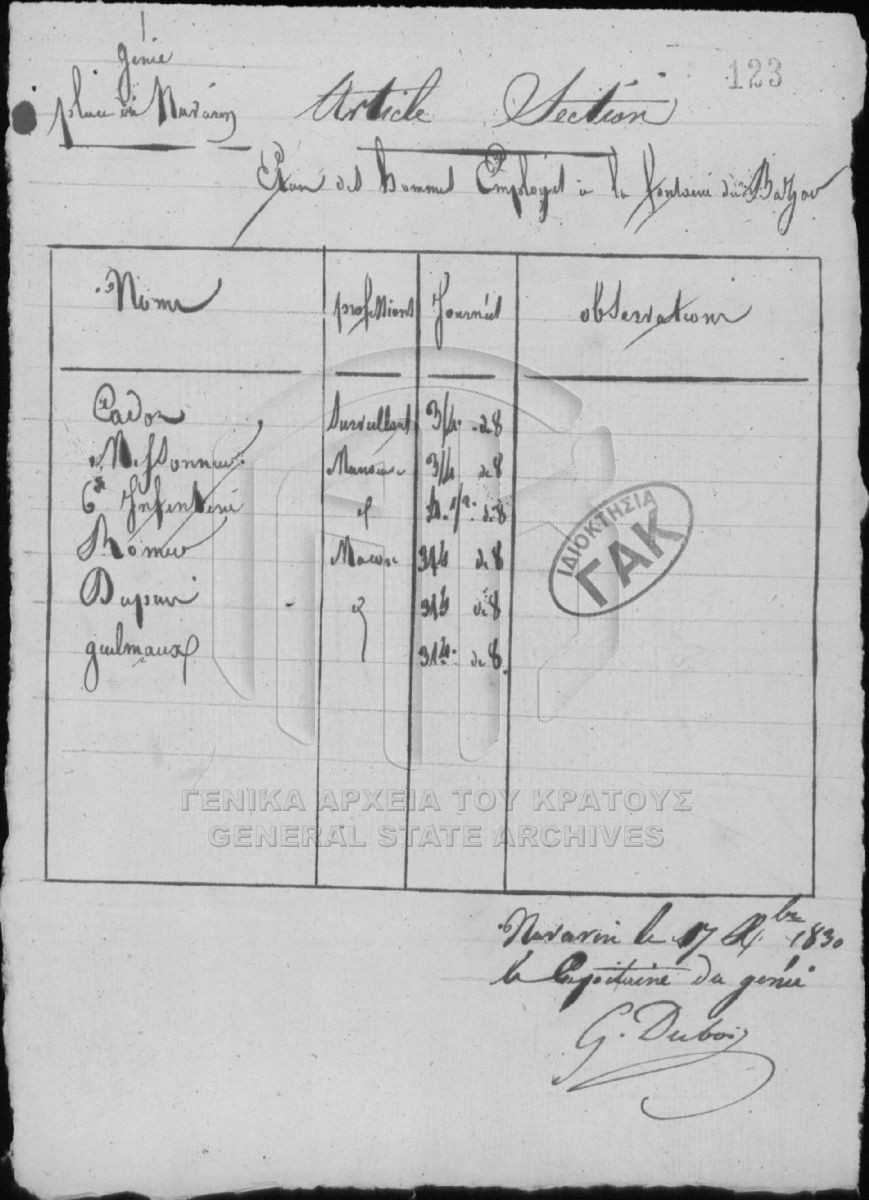 Génie
place de Navarin
Article Section
123
Etat des hommes Employés à la fontaine du Bazar
Noms professions Journées observations
Cador Surveillant 3/4 de 8
3/4 de 8
de 8
Romieu Macon 3/4 de 8
Dupui 3/4 de 8
guilmaux 3/4 de 8
ΙΔΙΟΚΤΗΣΙΑ
ΓΑΚ
ΓΕΝΙΚΑ ΑΡΧΕΙΑ ΤΟΥ ΚΡΑΤΟΥΣ
GENERAL STATE ARCHIVES
Navarin le 17 Xbre 1830
le Capitaine du génie
G. Dubois